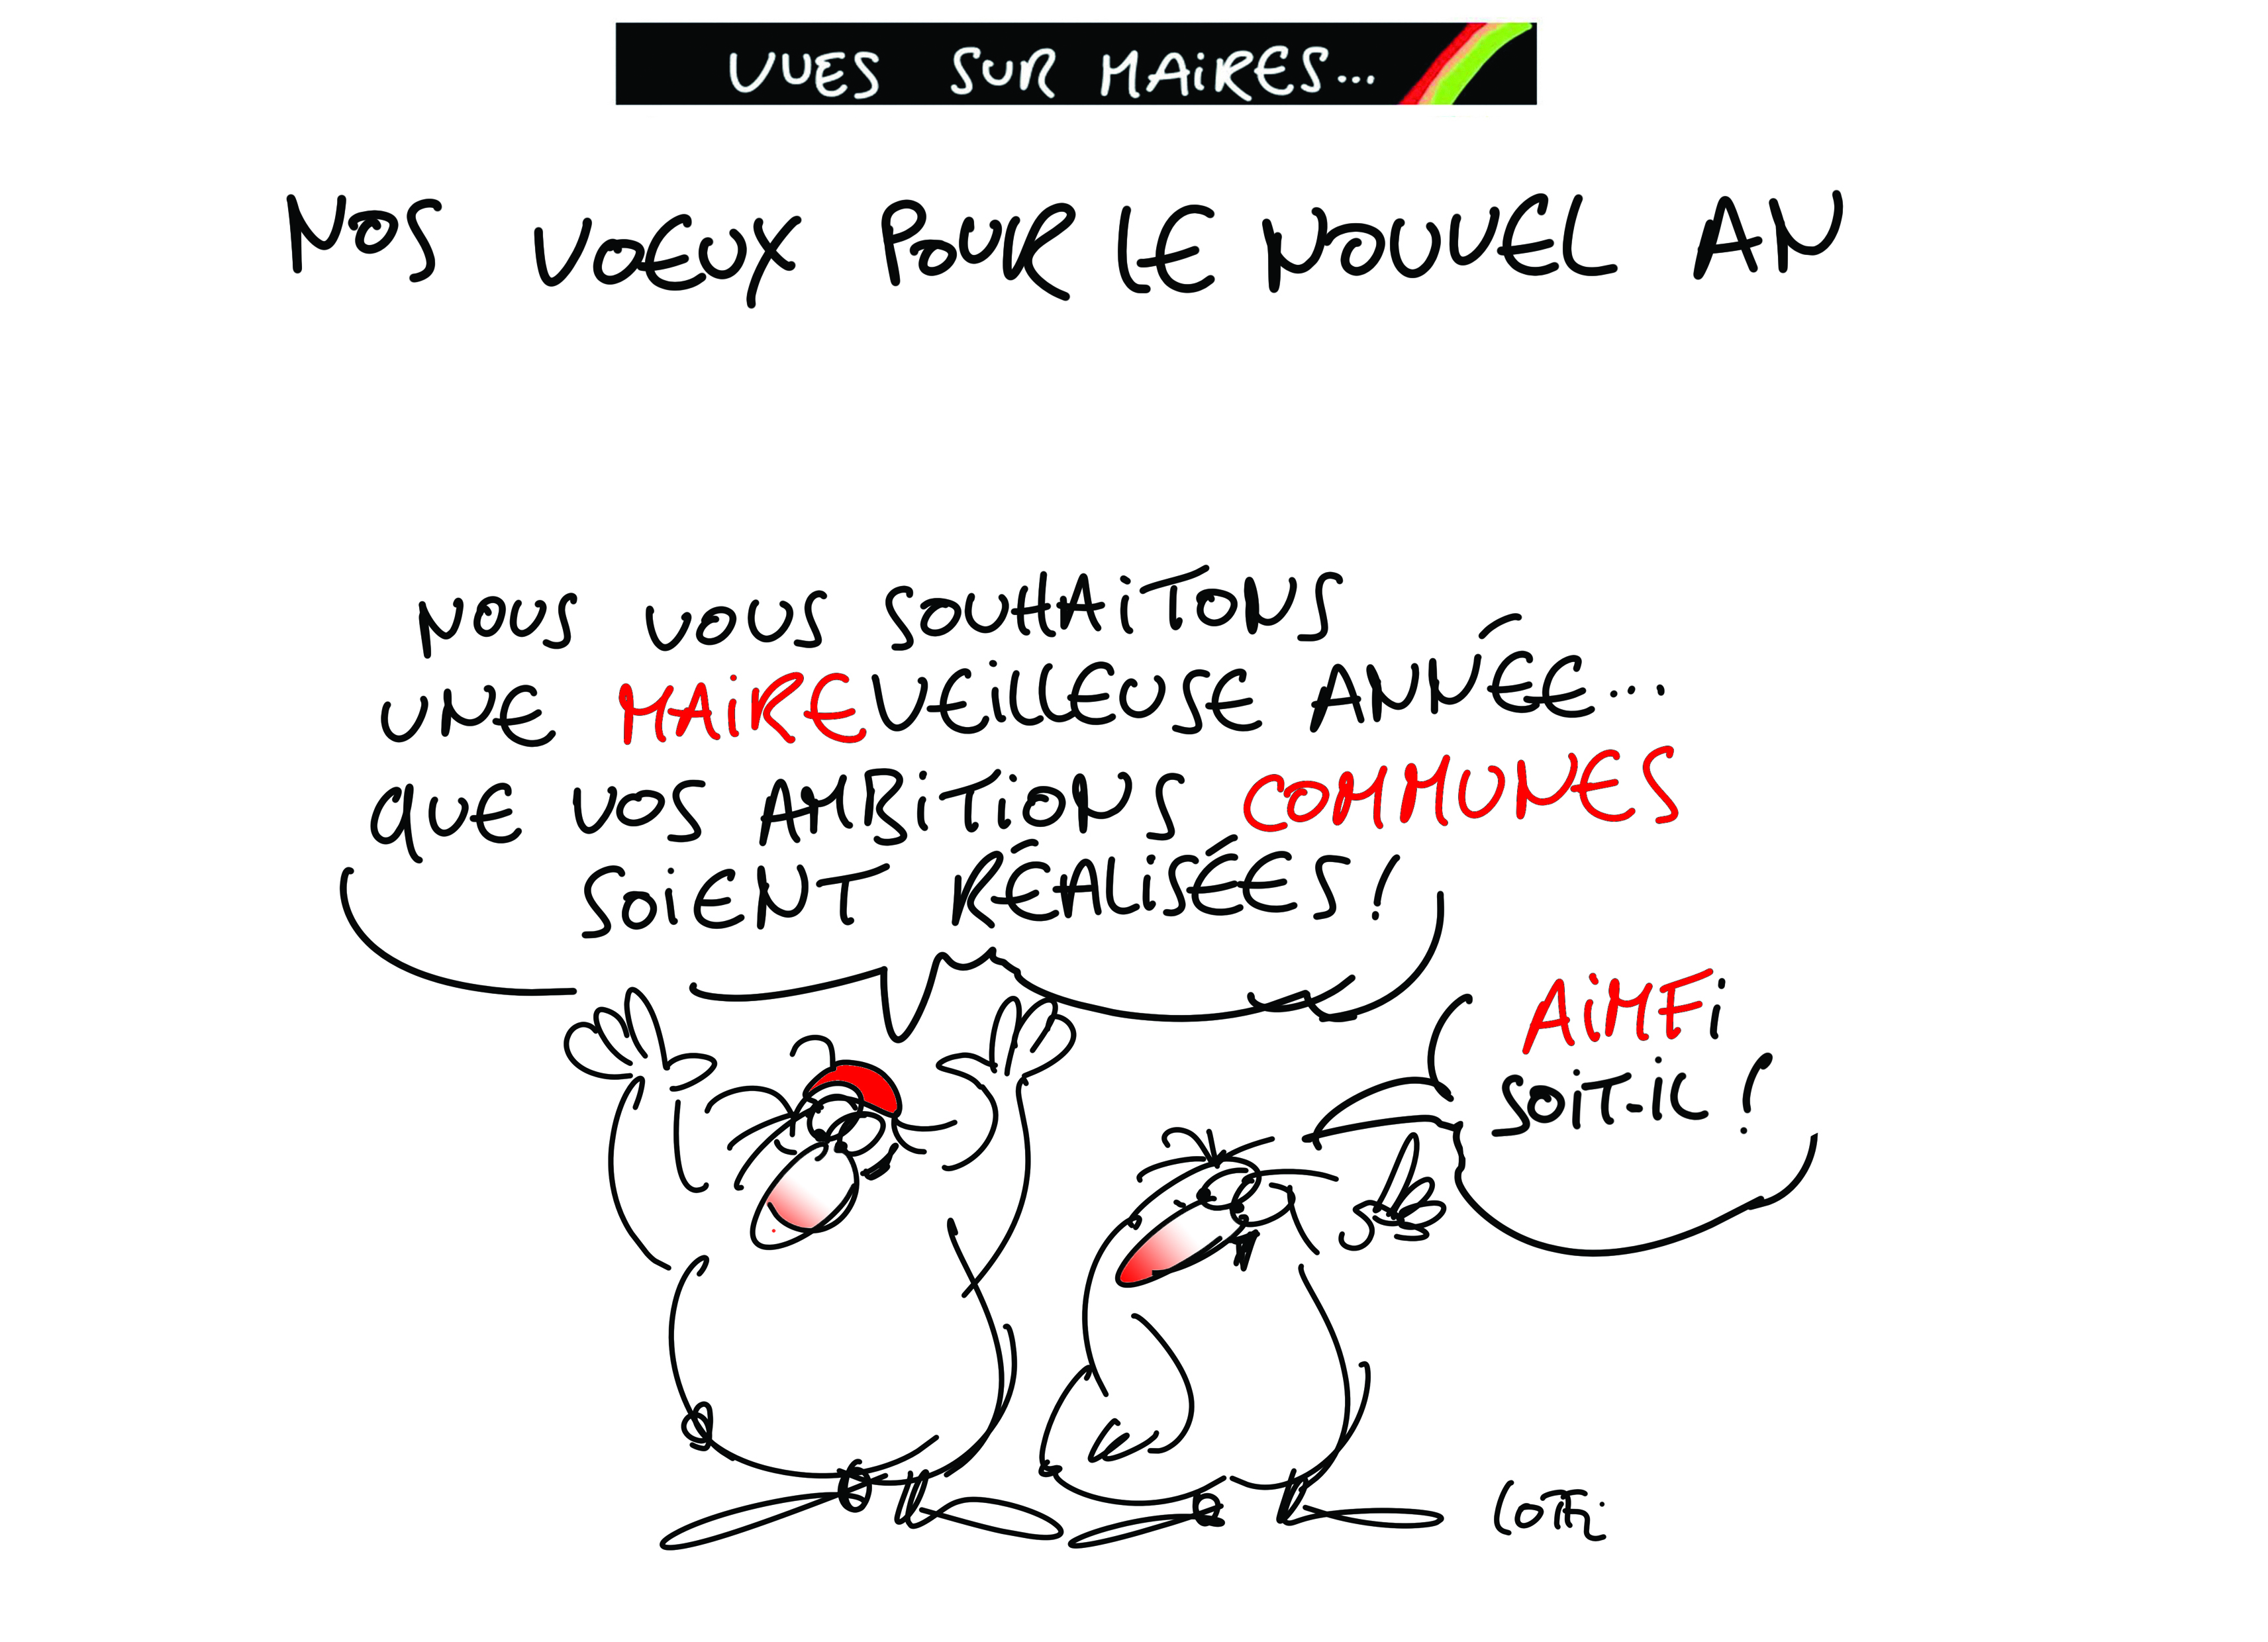 VUES SUR MAiRES...
NOS VOEUX POUR LE NOUVEL AN
NOUS VOUS SOUHAiTONS
UNE MAiREVEiLLEUSE ANNÉE...
QUE VOS AMBiTiONS COMMUNES
SOiENT RÉALiSÉES !
AiMFi
SOiT-iL !